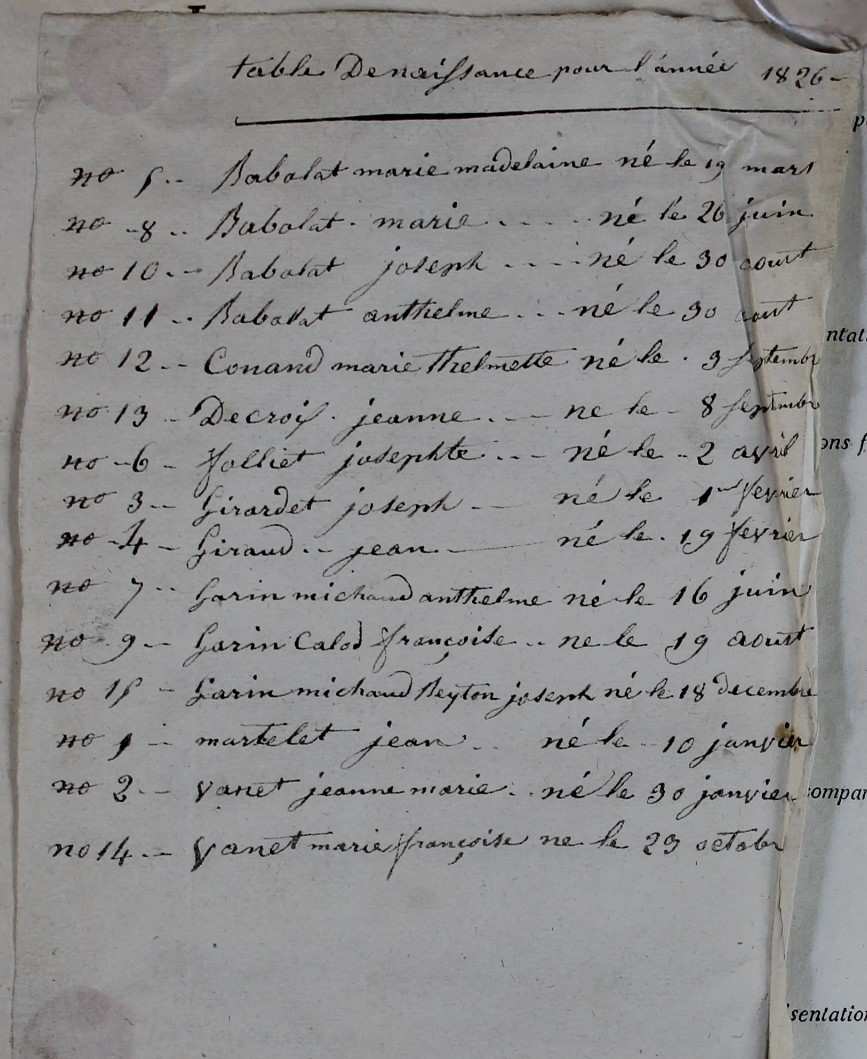 table De naissance pour l'année 1826 -
no 5 -- Babolat marie madelaine né le 19 mars
no - 8 -- Babolat - marie - - - - né le 26 juin
no 10 -- Babolat joseph - - - - né le 30 aoust
no 11 -- Babolat anthelme - - - né le 30 aoust
no 12 -- Conand marie thelmette né le - 3 septembr
no 13 - Decroix - jeanne - - - ne le - 8 septembr
no - 6 - folliet josephte - - - né le - 2 avril
no 3 - Girardet joseph - né le 1er fevrier
no - 4 - Giraud - - jean - né le - 19 fevrier
no 7 -- Garin michaud anthelme né le 16 juin
no 9 -- Garin Calod françoise -- ne le 19 aoust
no 15 - Garin michaud Reyton joseph né le 18 decembre
no 1 -- martelet jean -- né le - 10 janvier
no 2 -- vanet jeanne marie -- né le 30 janvier
no 14 -- Vanet marie françoise ne le 23 octobr
p
ntati
ons f
compar
sentation